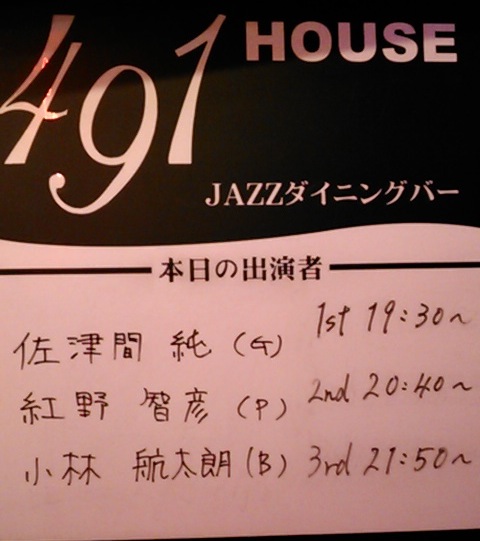 491 HOUSE
JAZZダイニングバー
本日の出演者
佐津間 純 (G) 1st 19:30~
紅野 智彦 (P) 2nd 20:40~
小林 航太朗 (B) 3rd 21:50~